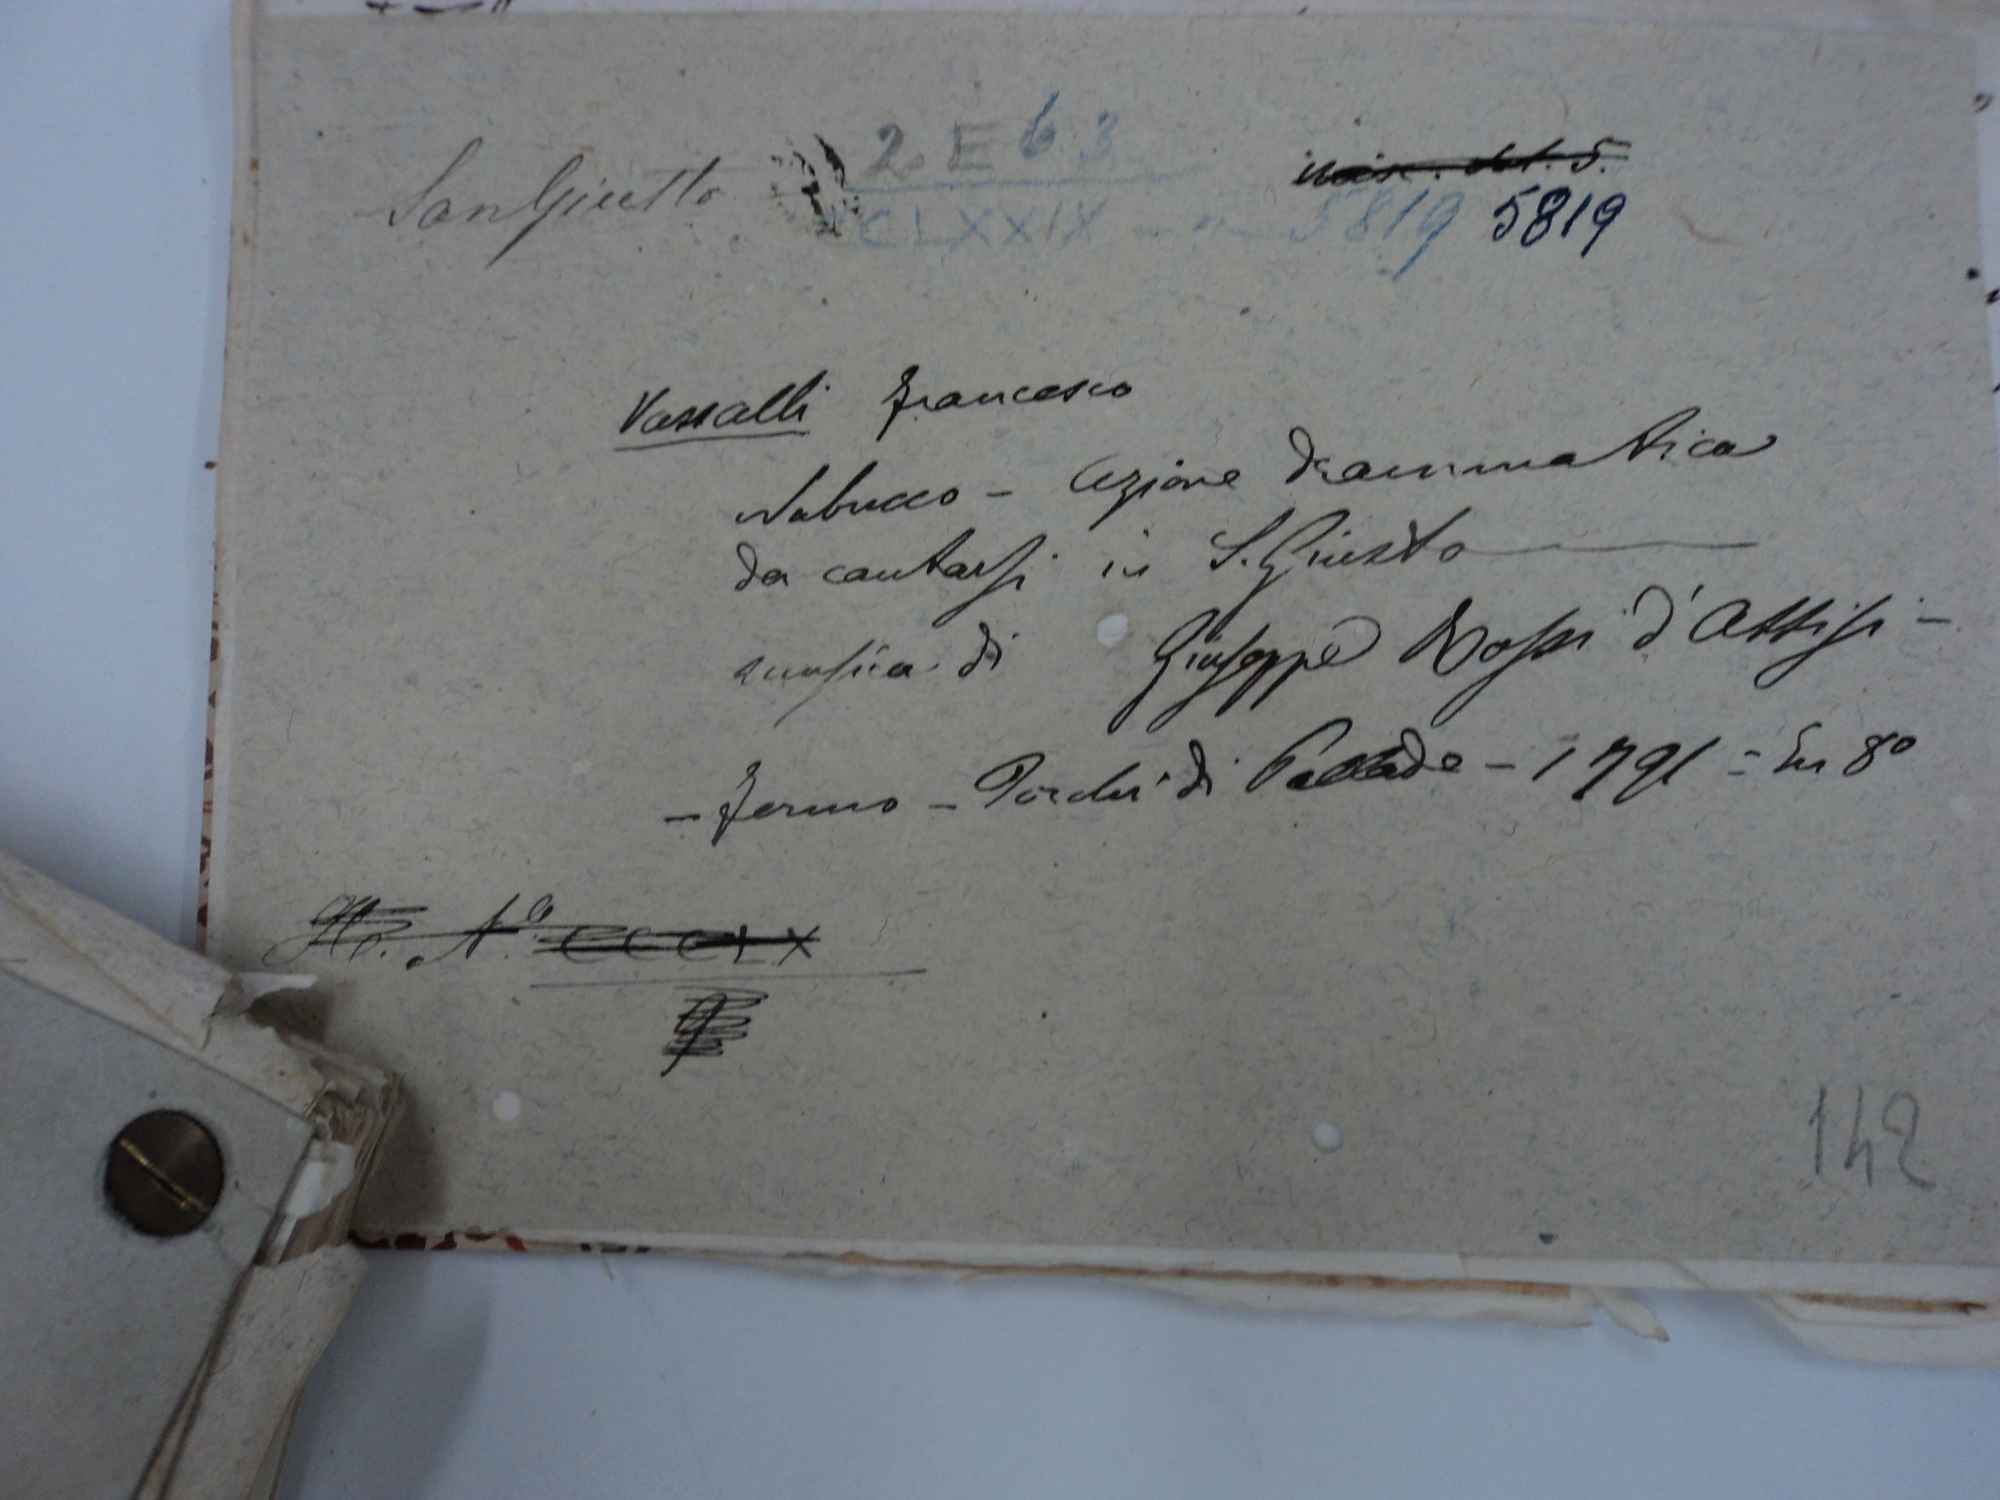 San Giusto 2 E 63
CLXXIX - n - 5819 5819
Vassalli Francesco
Nabucco - Azione drammatica
da cantarsi in S. Giusto
musica di Giuseppe Rossi d'Assisi -
- Fermo - Torchi di Pallade - 1791 = In 8°
N.° CCCLX
142